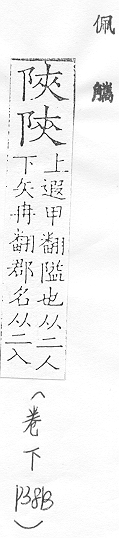 佩觿
陜陝
上遐甲翻隘也从二人
下矢冉翻郡名从二入
(卷下P38B)